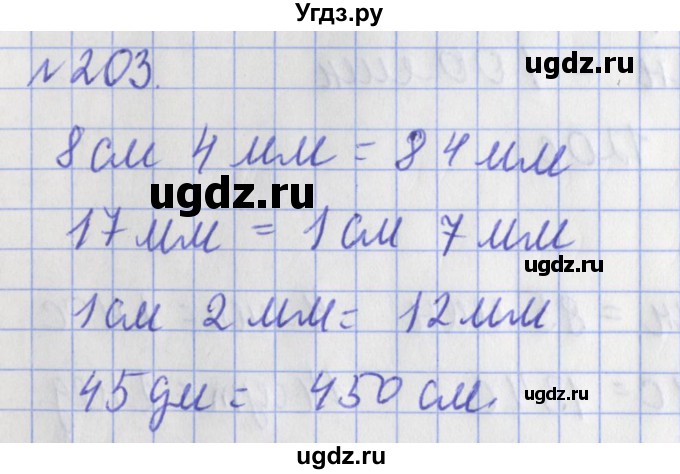 Угдз.ру
№203.
ugdz.ru
8 см 4 мм = 84 мм
ugdz.ru
17 мм = 1 см 7 мм
ugdz.ru
1 см 2 мм = 12 мм
45 дм = 450 см.
ugdz.ru
ugdz.ru